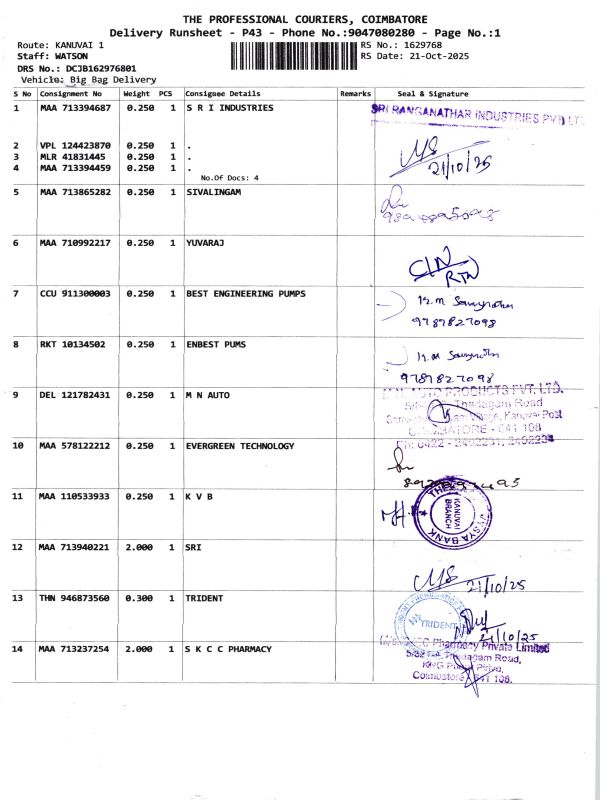 THE PROFESSIONAL COURIERS, COIMBATORE
Delivery Runsheet - P43 - Phone No.:9047080280 - Page No.:1
Route: KANUVAI 1 RS No.: 1629768
Staff: WATSON RS Date: 21-Oct-2025
DRS No.: DCJB162976801
Vehicle: Big Bag Delivery
S No Consignment No Weight PCS Consignee Details Remarks Seal & Signature
1 MAA 713394687 0.250 1 S R I INDUSTRIES
SRI RANGANATHAR INDUSTRIES PVT LTD
2 VPL 124423870 0.250 1 .
3 MLR 41831445 0.250 1 .
4 MAA 713394459 0.250 1 . 21/10/25
No.Of Docs: 4
5 MAA 713865282 0.250 1 SIVALINGAM
6 MAA 710992217 0.250 1 YUVARAJ
RTN
7 CCU 911300003 0.250 1 BEST ENGINEERING PUMPS
9787827098
8 RKT 10134502 0.250 1 ENBEST PUMS
9787827098
9 DEL 121782431 0.250 1 M N AUTO
AUTO PRODUCTS PVT. LTD.
Thadagam Road
Village, Kanuvai Post
COIMBATORE - 641 108
Ph: 0422 - 2402231, 2402234
10 MAA 578122212 0.250 1 EVERGREEN TECHNOLOGY
11 MAA 110533933 0.250 1 K V B
KANUVAI
BRANCH
VYSYA BANK
12 MAA 713940221 2.000 1 SRI
21/10/25
13 THN 946873560 0.300 1 TRIDENT
TRIDENT
21/10/25
14 MAA 713237254 2.000 1 S K C C PHARMACY
Pharmacy Private Limited
Thadagam Road,
Coimbatore - 641 108.